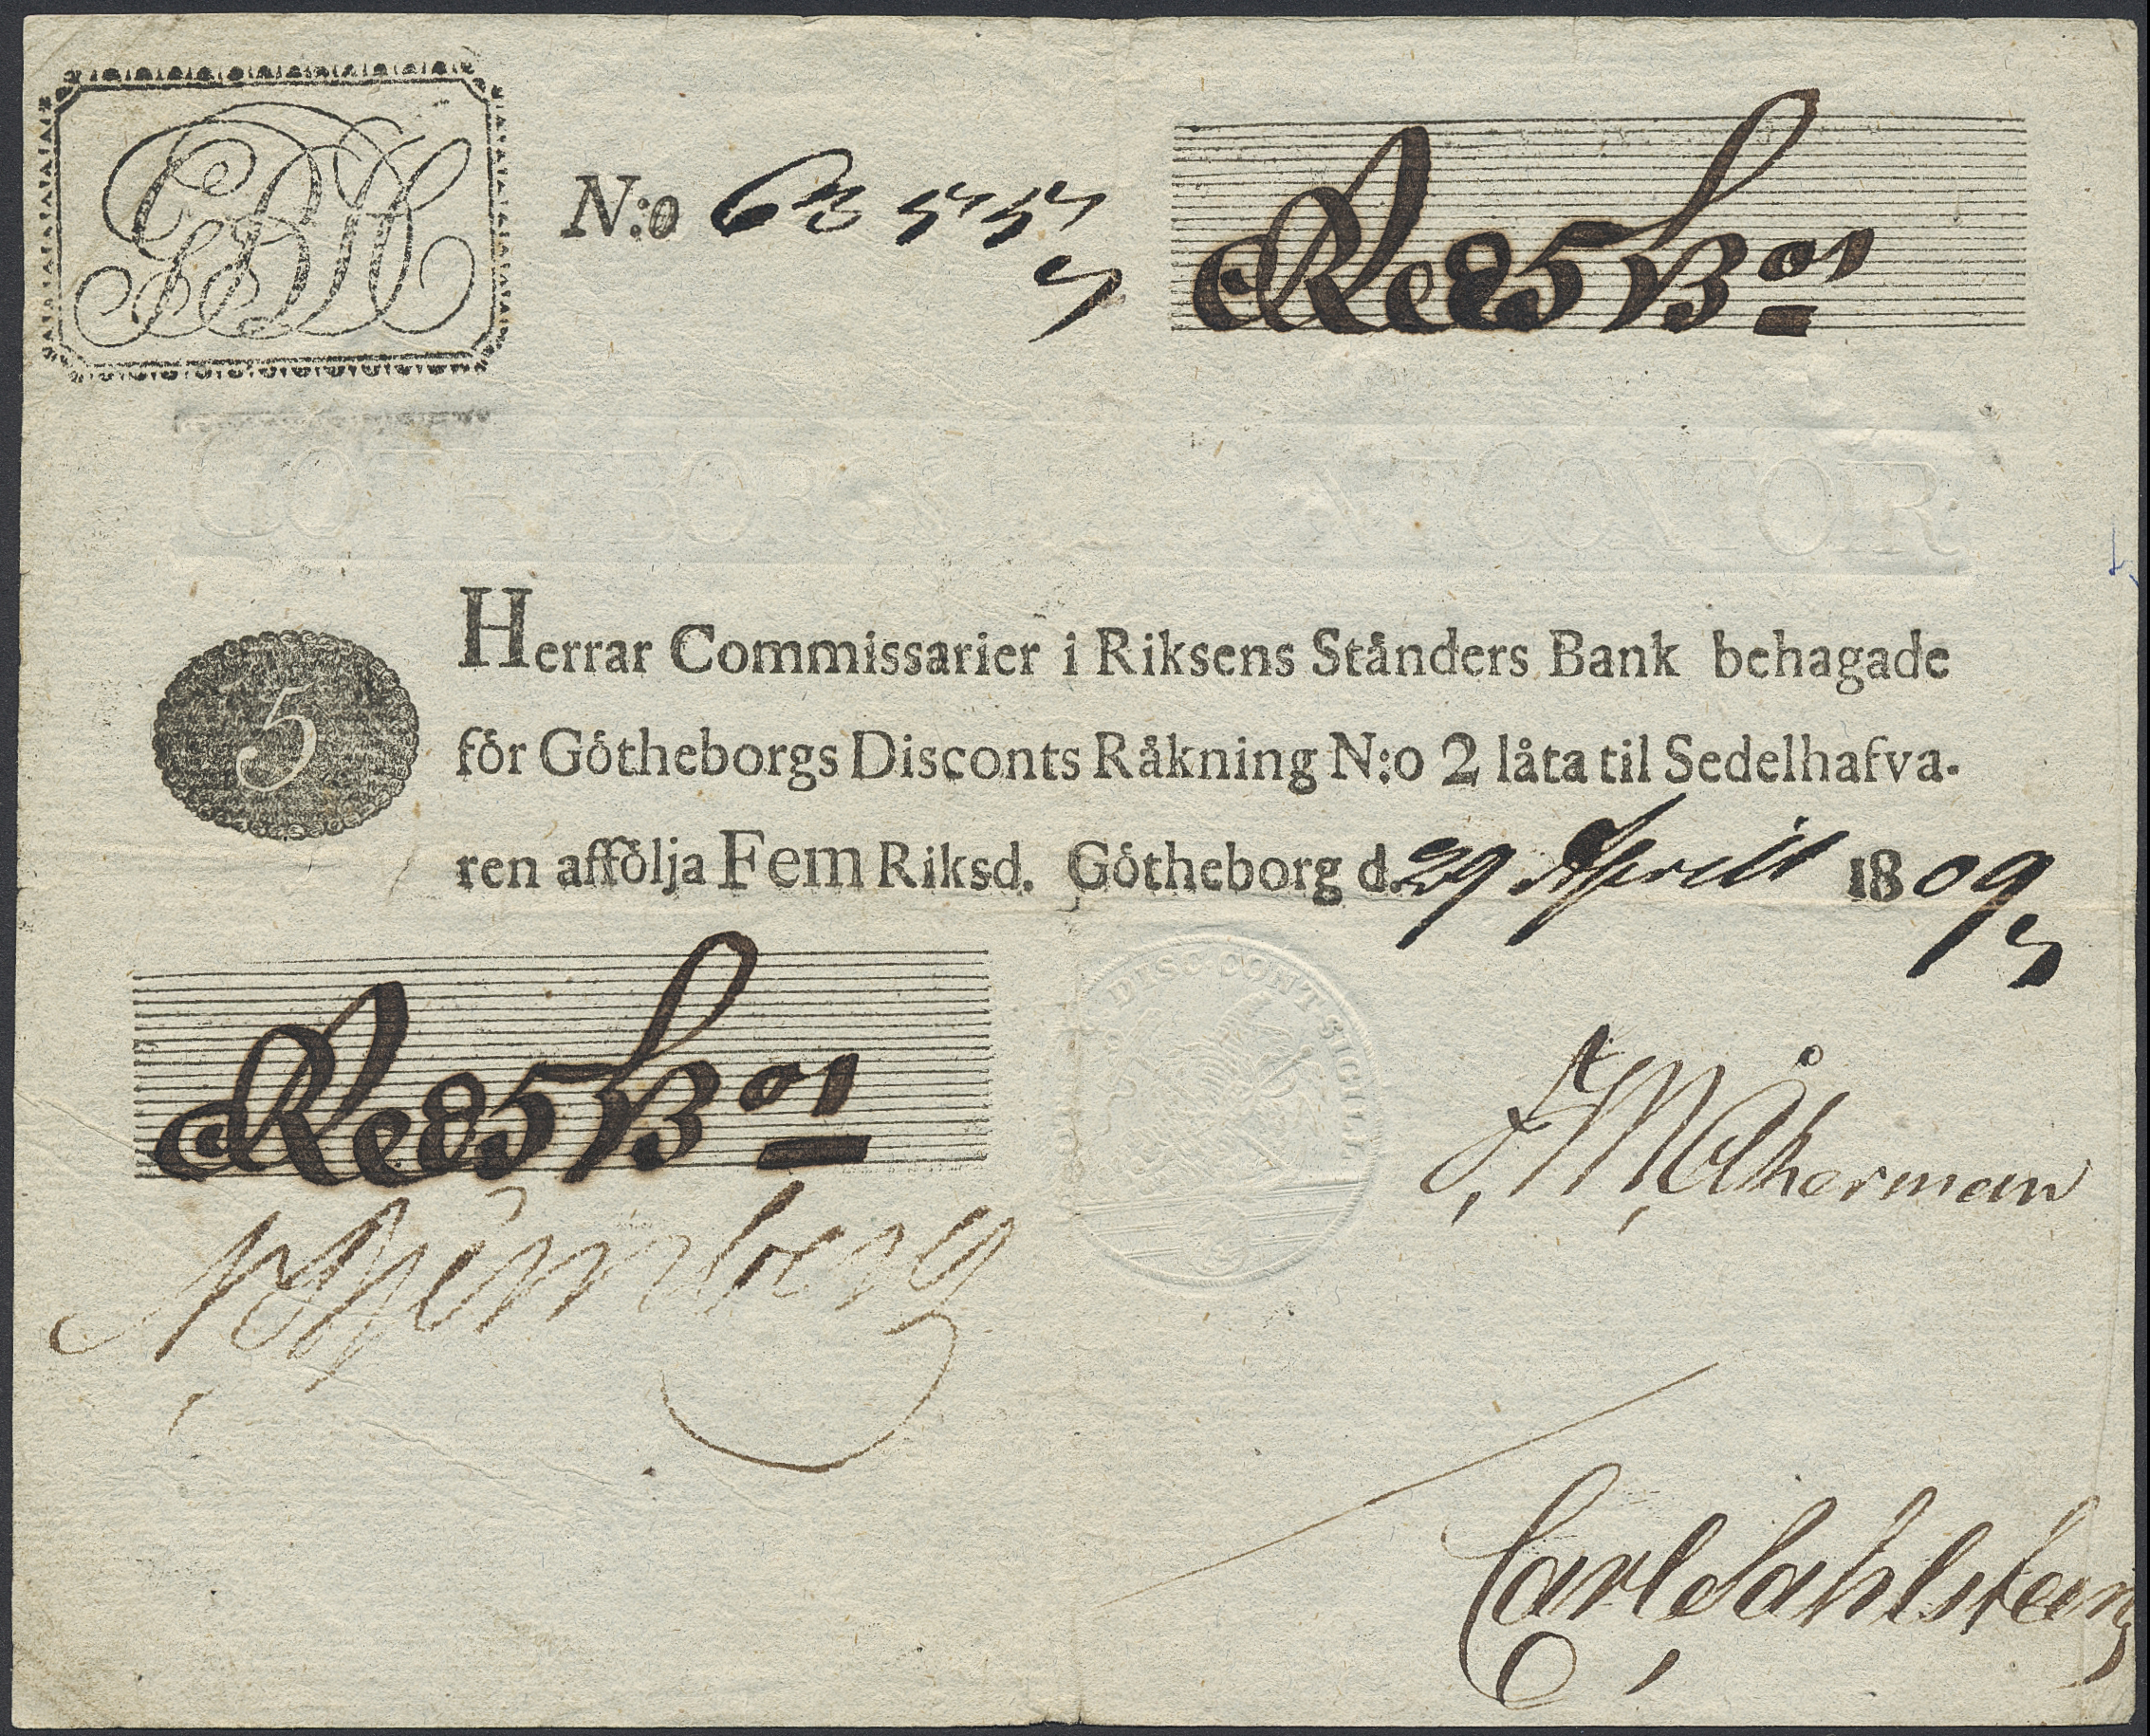 GDK
N:o 62557
Rdr 5 ß
GÖTHEBORGS
NTCONTOIR
5
Herrar Commissarier i Riksens Ständers Bank behagade
för Götheborgs Disconts Räkning N:o 2 låta til Sedelhafva-
ren afföl­ja Fem Riksd. Götheborg d. 29 April 1809
DISC:CONT:SIGILL
Rdr 5 ß
Åkerman
Carl